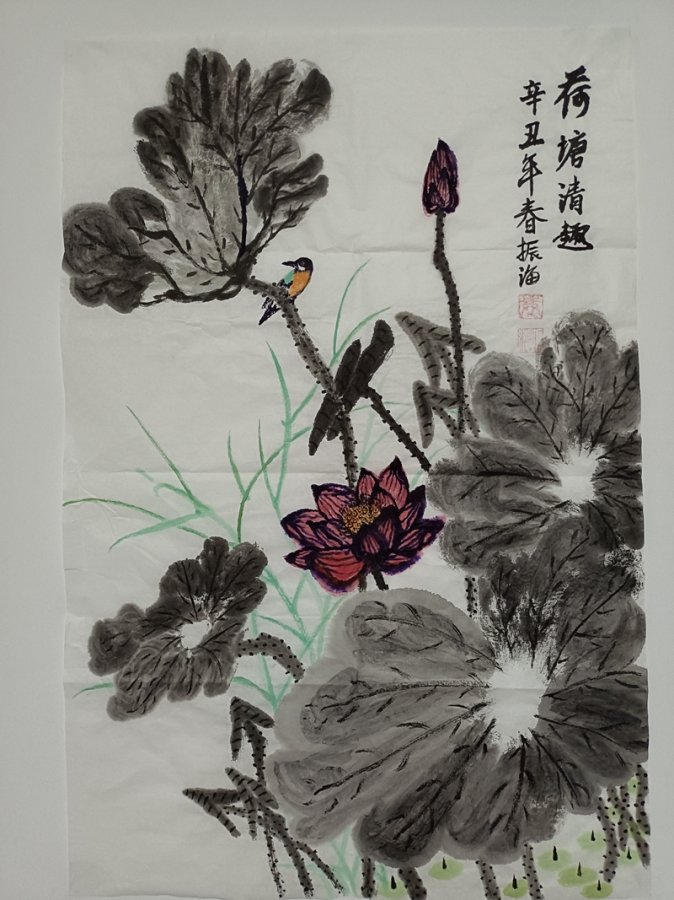 荷塘清趣
辛丑年春振海